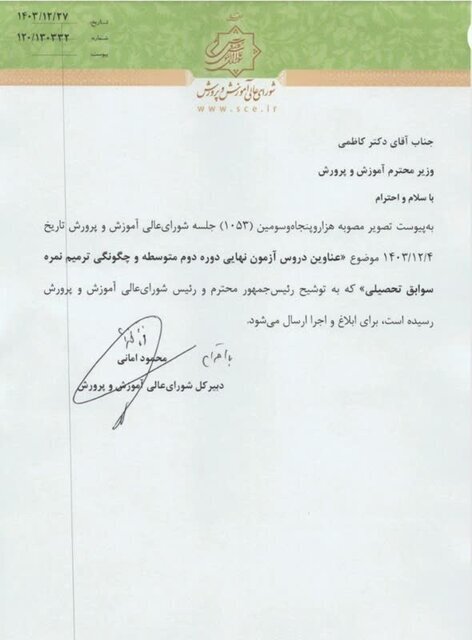 تاریخ: ۱۴۰۳/۱۲/۲۷
شماره: ۱۲۰/۱۳۰۳۳۲
پیوست:
شورای‌عالی آموزش و پرورش
www.sce.ir
جناب آقای دکتر کاظمی
وزیر محترم آموزش و پرورش
با سلام و احترام
به‌پیوست تصویر مصوبه هزاروپنجاه‌وسومین (۱۰۵۳) جلسه شورای‌عالی آموزش و پرورش تاریخ
۱۴۰۳/۱۲/۴ موضوع «عناوین دروس آزمون نهایی دوره دوم متوسطه و چگونگی ترمیم نمره
سوابق تحصیلی» که به توشیح رئیس‌جمهور محترم و رئیس شورای‌عالی آموزش و پرورش
رسیده است، برای ابلاغ و اجرا ارسال می‌شود.
با احترام
محمود امانی
دبیرکل شورای‌عالی آموزش و پرورش